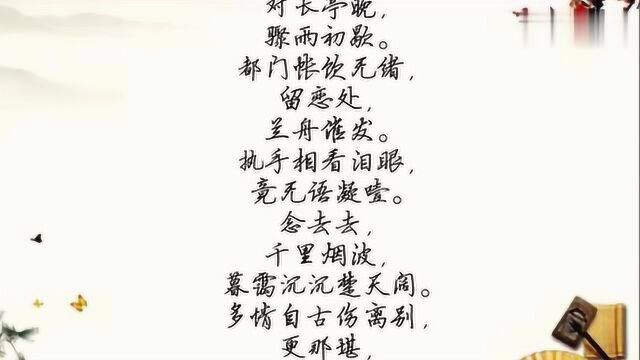 对长亭晚，
骤雨初歇。
都门帐饮无绪，
留恋处，
兰舟催发。
执手相看泪眼，
竟无语凝噎。
念去去，
千里烟波，
暮霭沉沉楚天阔。
多情自古伤离别，
更那堪，